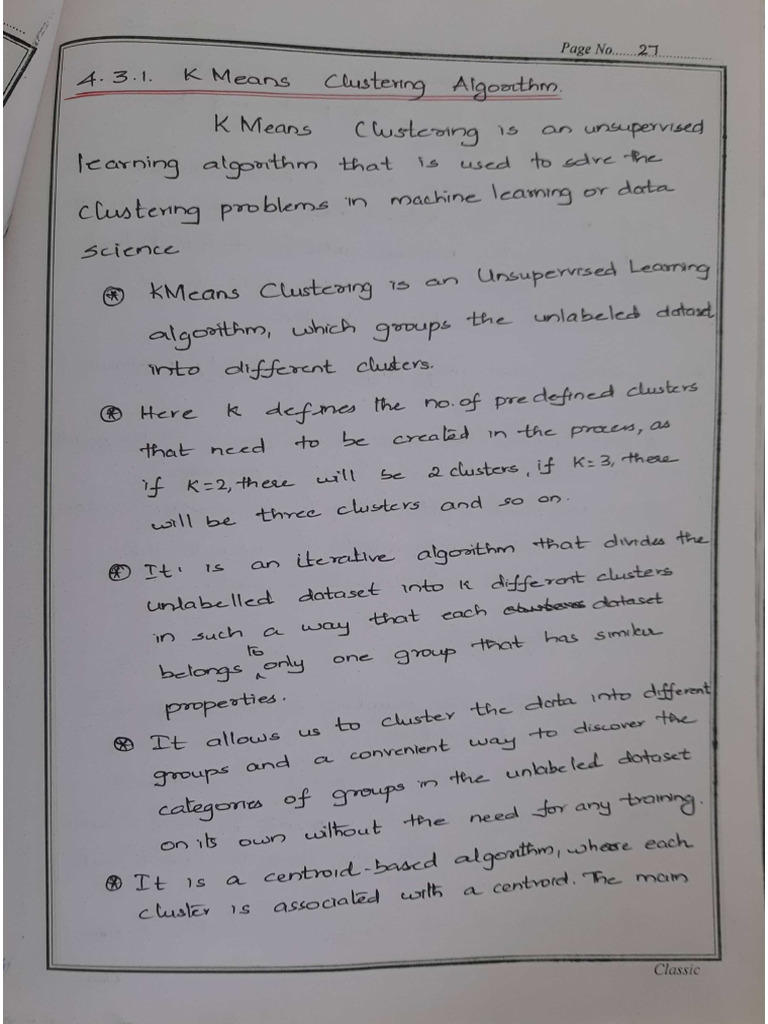 Page No......27..............
4.3.1. K Means Clustering Algorithm.
K Means Clustering is an unsupervised
learning algorithm that is used to solve the
clustering problems in machine learning or data
science
⊛ KMeans Clustering is an Unsupervised Learning
algorithm, which groups the unlabeled dataset
into different clusters.
⊛ Here K defines the no. of predefined clusters
that need to be created in the process, as
if K=2, there will be 2 clusters, if K=3, there
will be three clusters and so on.
⊛ It is an iterative algorithm that divides the
unlabelled dataset into K different clusters
in such a way that each clusters dataset
belongs to only one group that has similar
properties.
⊛ It allows us to cluster the data into different
groups and a convenient way to discover the
categories of groups in the unlabeled dataset
on its own without the need for any training.
⊛ It is a centroid-based algorithm, where each
cluster is associated with a centroid. The main
Classic